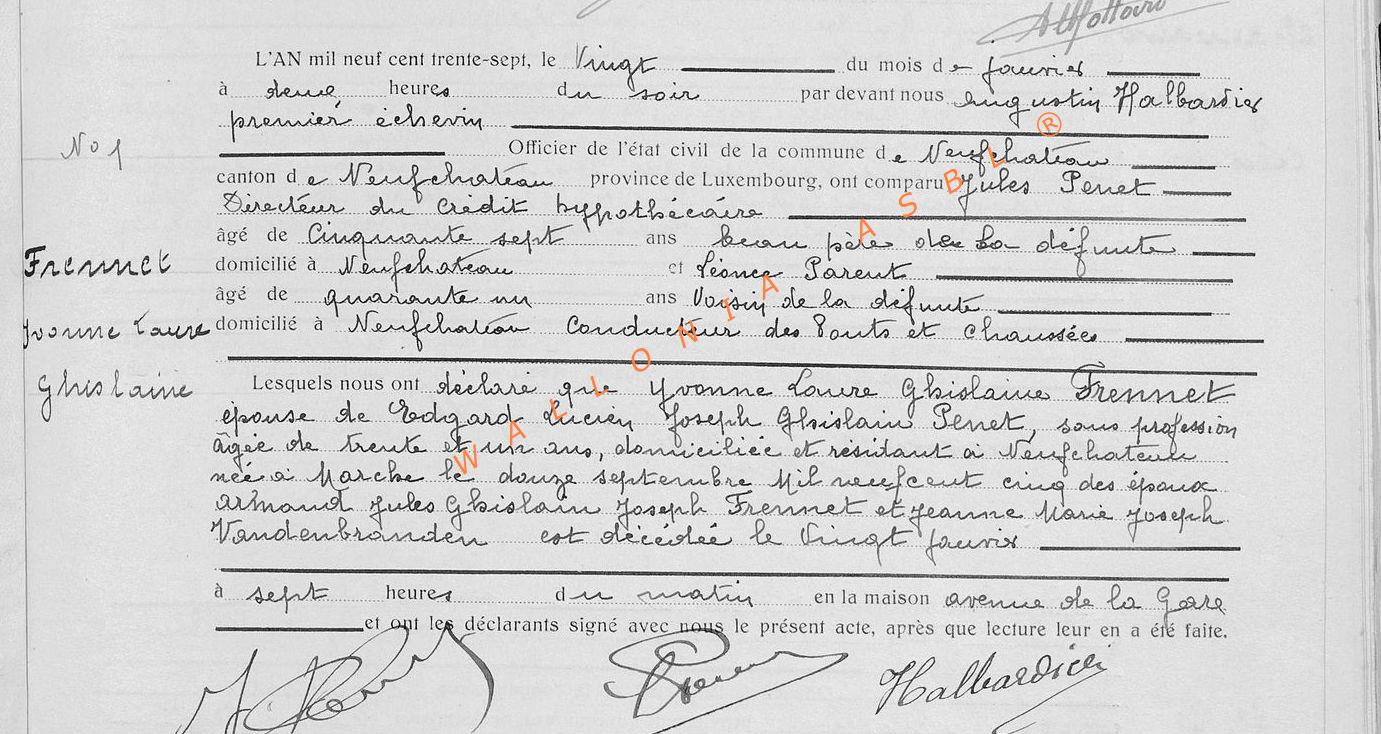 L'AN mil neuf cent trente-sept, le Vingt du mois de janvier
à deux heures du soir par devant nous Augustin Halbardier
premier échevin
No 1
Officier de l'état civil de la commune de Neufchateau
canton de Neufchateau province de Luxembourg, ont comparu Jules Penet
Directeur du Crédit hypothécaire
âgé de Cinquante sept ans beau père de la défunte
Frennet
domicilié à Neufchateau et Léonce Parent
âgé de quarante un ans Voisin de la défunte
Yvonne Laure
domicilié à Neufchateau Conducteur des Ponts et Chaussées
Ghislaine
Lesquels nous ont déclaré que Yvonne Laure Ghislaine Frennet
épouse de Edgard Lucien Joseph Ghislain Penet, sans profession
âgée de trente et un ans, domiciliée et résidant à Neufchateau
née à Marche le douze septembre Mil neufcent cinq des époux
Armand Jules Ghislain Joseph Frennet et Jeanne Marie Joseph
Vandenbranden est décédée le Vingt janvier
à sept heures du matin en la maison avenue de la Gare
et ont les déclarants signé avec nous le présent acte, après que lecture leur en a été faite.
Halbardier
WALLONIA ASBL ®